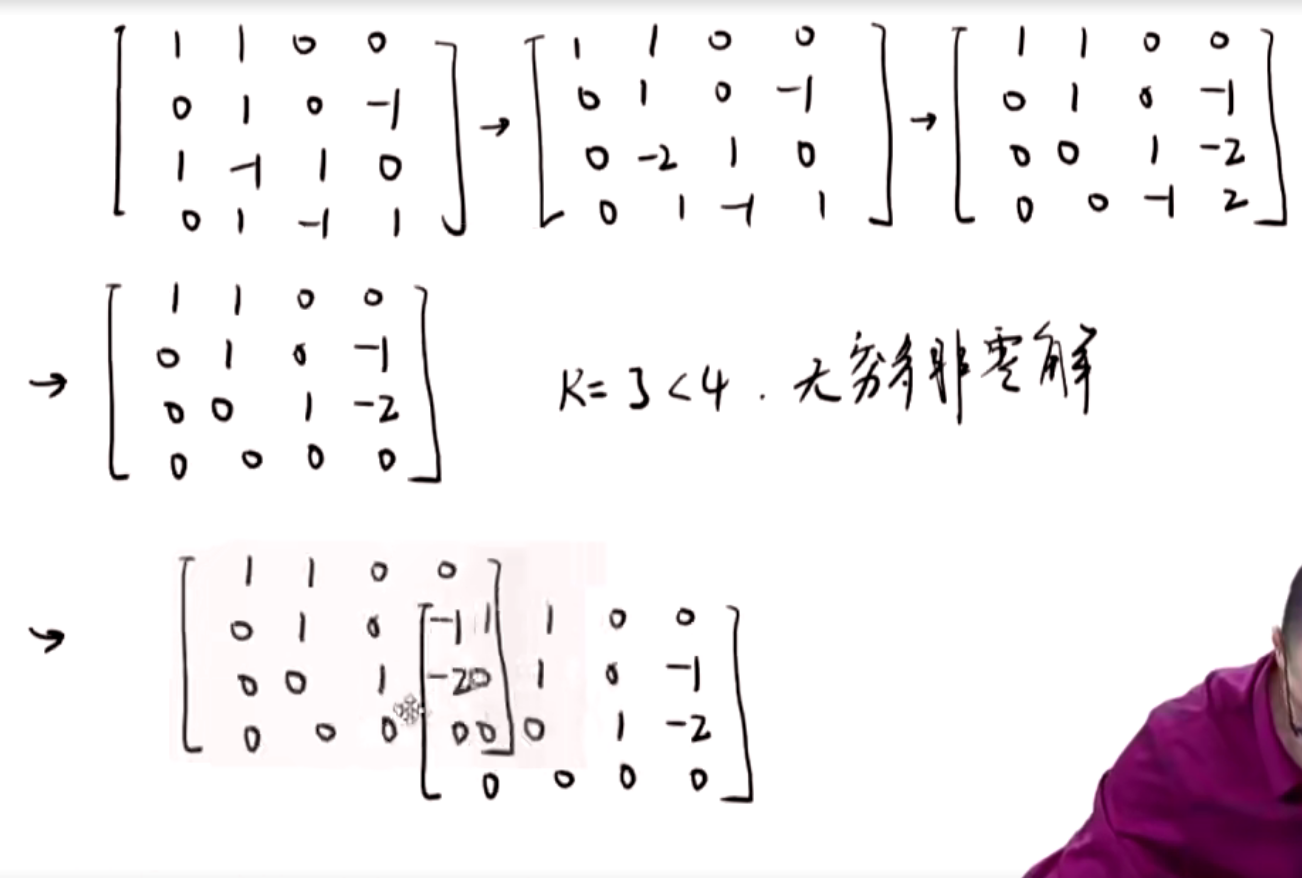 1 1 0 0
0 1 0 -1
1 -1 1 0
0 1 -1 1
→
1 1 0 0
0 1 0 -1
0 -2 1 0
0 1 -1 1
→
1 1 0 0
0 1 0 -1
0 0 1 -2
0 0 -1 2
→
1 1 0 0
0 1 0 -1
0 0 1 -2
0 0 0 0
K=3<4. 无穷多非零解
→
1 1 0 0
0 1 0 -1
0 0 1 -2
0 0 0 0
1 1 0 0
0 1 0 -1
0 0 1 -2
0 0 0 0